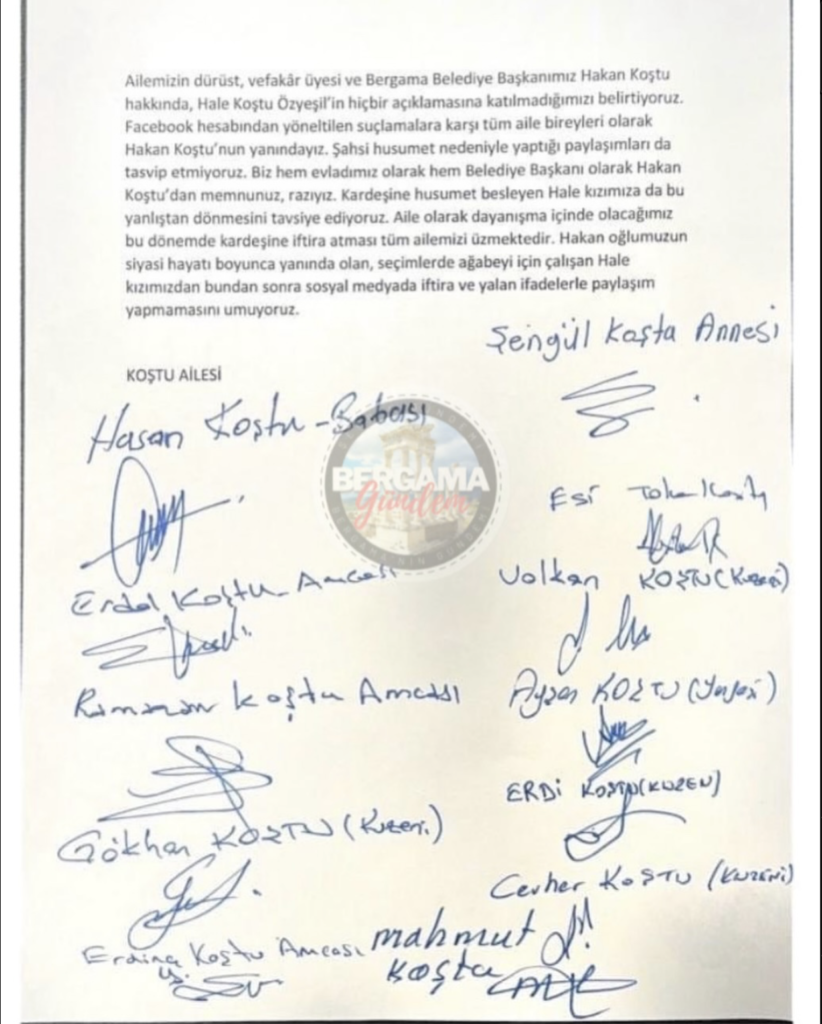 Ailemizin dürüst, vefakâr üyesi ve Bergama Belediye Başkanımız Hakan Koştu
hakkında, Hale Koştu Özyeşil'in hiçbir açıklamasına katılmadığımızı belirtiyoruz.
Facebook hesabından yöneltilen suçlamalara karşı tüm aile bireyleri olarak
Hakan Koştu'nun yanındayız. Şahsi husumet nedeniyle yaptığı paylaşımları da
tasvip etmiyoruz. Biz hem evladımız olarak hem Belediye Başkanı olarak Hakan
Koştu'dan memnunuz, razıyız. Kardeşine husumet besleyen Hale kızımıza da bu
yanlıştan dönmesini tavsiye ediyoruz. Aile olarak dayanışma içinde olacağımız
bu dönemde kardeşine iftira atması tüm ailemizi üzmektedir. Hakan oğlumuzun
siyasi hayatı boyunca yanında olan, seçimlerde ağabeyi için çalışan Hale
kızımızdan bundan sonra sosyal medyada iftira ve yalan ifadelerle paylaşım
yapmamasını umuyoruz.
Şengül Koştu Annesi
KOŞTU AİLESİ
Hasan Koştu - Babası
BERGAMA
Gündem
Eşi
Erdal Koştu Amcası
Volkan KOŞTU (Kuzeni)
Ramazan Koştu Amcası
Aysen KOŞTU
ERDİ KOŞTU (KUZEN)
Gökhan KOŞTU (Kuzeni)
Cevher KOŞTU (KUZENİ)
Erdinç Koştu Amcası
mahmut
Koştu